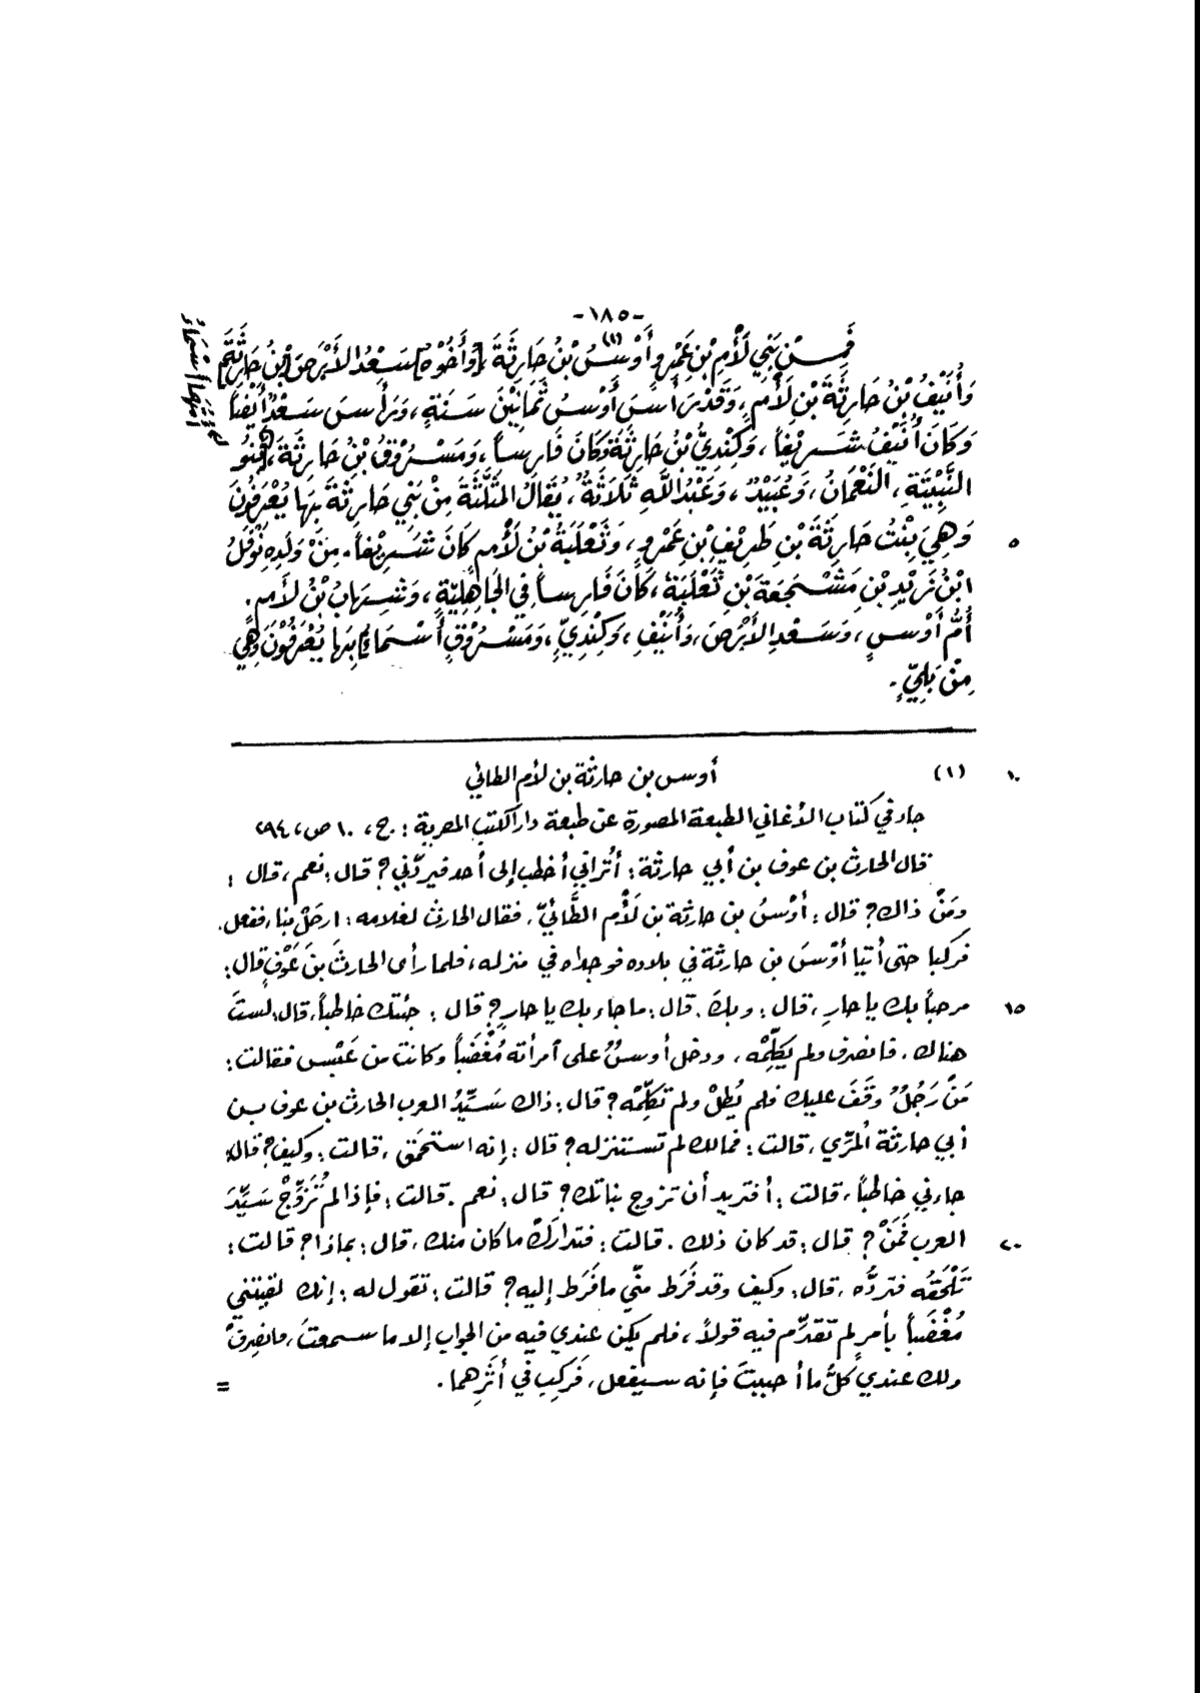 -١٨٥-
فَمِنْ بَنِي لَأْمِ بْنِ عَمْرٍو أَوْسُ(١) بْنُ حَارِثَةَ [وَأَخُوْهُ] سَعْدُ الأَبْرَصَ [بْنُ حَارِثَةَ]
أُمُّهَا أَسْمَاءُ
وَأُنَيْفُ بْنُ حَارِثَةَ بْنِ لَأْمٍ، وَقَدْ رَأَسَ أَوْسُ ثَمَانِيْنَ سَنَةٍ، وَرَأَسَ سَعْدٌ أَيْضاً
وَكَانَ أُنَيْفُ شَرِيْفاً، وَكِنْدِيُّ بْنُ حَارِثَةَ وَكَانَ فَارِساً، وَمَسْرُوْقُ بْنُ حَارِثَةَ، بَنُو
النَّبِيْتَةِ، النُّعْمَانُ، وَعُبَيْدٌ، وَعَبْدُ اللَّهِ ثَلَاثَةٌ، يُقَالُ المُثَلَّثَةَ مِنْ بَنِي حَارِثَةَ بِهَا يُعْرَفُونَ
وَهِيَ بِنْتُ حَارِثَةَ بْنِ طَرِيْفِ بْنِ عَمْرٍو، وَثَعْلَبَةُ بْنُ لَأْمٍ كَانَ شَرِيْفاً. مِنْ وَلَدِهِ نَوْفَلُ
٥
ابْنُ زَيْدِ بْنِ مَشْجَعَةَ بْنِ ثَعْلَبَةَ، كَانَ فَارِساً فِي الجَاهِلِيَّةِ، وَشِهَابُ بْنُ لَأْمٍ.
أُمُّ أَوْسٍ، وَسَعْدِ الأَبْرَصَ، وَأُنَيْفِ، وَكِنْدِيٍّ، وَمَسْرُوْقٍ أَسْمَاءُ بِهَا يُعْرَفُوْنَ وَهِيَ
مِنْ بَلِيٍّ.
(١) أوس بن حارثة بن لأم الطائي
١٠
جاء في كتاب الأغاني الطبعة المصورة عن طبعة دار الكتب المصرية: ج، ١٠ ص، ٢٩٤
قال الحارث بن عوف بن أبي حارثة: أتُراني أخطب إلى أحد فيردّني؟ قال: نعم، قال:
ومَنْ ذاك؟ قال: أوْسُ بن حارثة بن لَأْم الطَّائيّ. فقال الحارث لغلامه: ارحَلْ بنا، ففعل.
فركبا حتى أتيا أوْسَ بن حارثة في بلاده فوجداه في منزله، فلما رأى الحارثَ بنَ عَوْفٍ قال:
مرحباً بك يا حارِ، قال: وبكَ. قال: ما جاء بك يا حارِ؟ قال: جئتك خاطباً، قال: لستَ
١٥
هناك. فانصرف ولم يكلِّمْه، ودخل أوسٌ على آمرأته مُغْضَباً وكانت من عَبْس فقالت:
مَنْ رَجُلٌ وقَفَ عليك فلم يُطِلْ ولم تكلِّمْه؟ قال: ذاك سَيِّدُ العرب الحارث بن عوف بن
أبي حارثة المرّي، قالت: فمالك لم تستنزله؟ قال: إنه استحمَق، قالت: وكيف؟ قال:
جاءني خاطباً، قالت: أفتريد أن تزوج بناتك؟ قال: نعم. قالت: فإذا لم تُزَوِّجْ سَيِّدَ
العرب فمَنْ؟ قال: قد كان ذلك. قالت: فتدارَكْ ما كان منك، قال: بماذا؟ قالت:
٢٠
تَلْحَقُه فتردُّه، قال: وكيف وقد فَرَط منّي ما فَرَط إليه؟ قالت: تقول له: إنك لقيتني
مُغْضَباً بأمرٍ لم تقدِّم فيه قولاً، فلم يكن عندي فيه من الجواب إلا ما سمعتَ، فانصرفْ
ولك عندي كلُّ ما أحببتَ فإنه سيفعل، فركب في أثَرِهما.
=